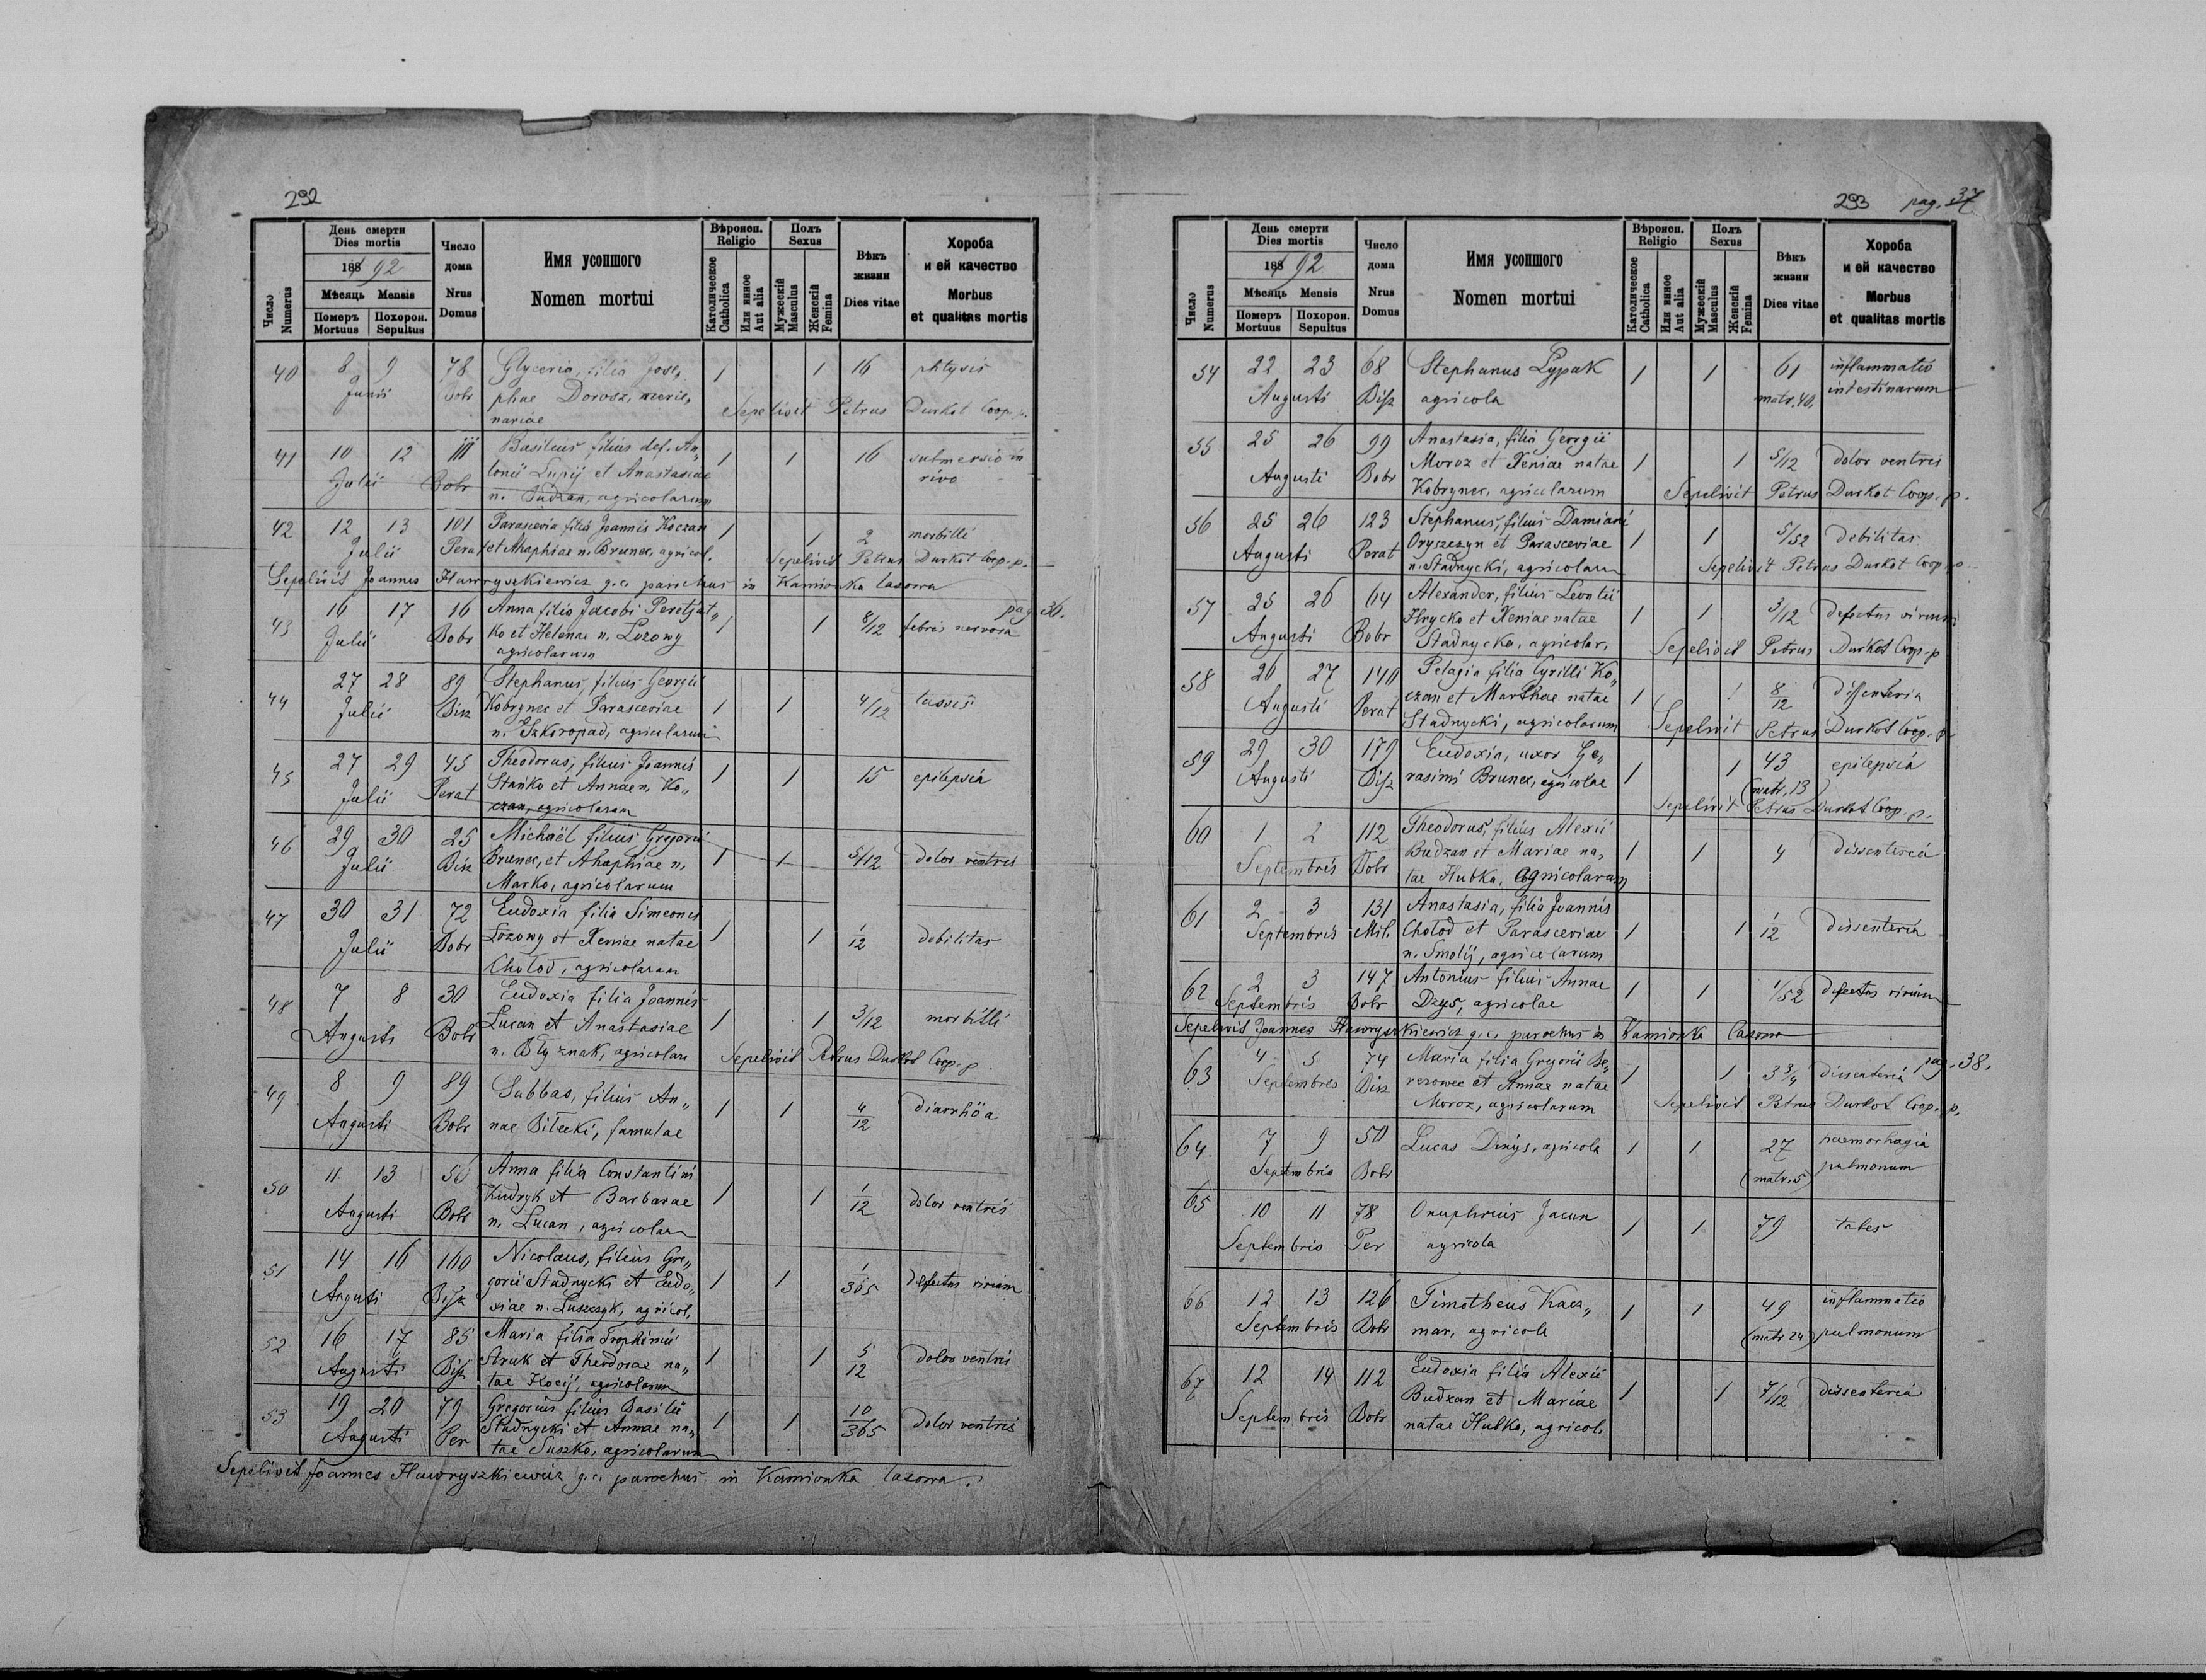 292
День смерти
Dies mortis
188 92
Мѣсяць Mensis
Померъ Mortuus
Похорон. Sepultus
Число Numerus
Число дома
Nrus Domus
Имя усопшого
Nomen mortui
Вѣроисп.
Religio
Католическое Catholica
Или инное Aut alia
Полъ
Sexus
Мужескій Masculus
Женскій Femina
Вѣкъ жизни
Dies vitae
Хороба
и ей качество
Morbus
et qualitas mortis
40 8 9 78 Glyceria, filia Jose„ 1 1 16 phtysis
Junii Bobr phae Dorosz, merce„
nariae Sepelivit Petrus Durkot Coop. p.
41 10 12 111 Basileus, filius def. An„ 1 1 16 submersio in
Julii Bobr tonii Lupij et Anastasiae rivo
n. Budzan, agricolarum
42 12 13 101 Parascevia filia Joannis Koczan 1 1 2 morbilli
Julii Perat et Ahaphiae n. Brunec, agricol. Sepelivit Petrus Durkot Coop. p.
Sepelivit Joannes Hawryszkiewicz g. c. parochus in Kamionka lasowa
pag. 36.
43 16 17 16 Anna filia Jacobi Peretjat„ 1 1 8/12 febris nervosa
Julii Bobr ko et Helenae n. Lozowy
agricolarum
44 27 28 89 Stephanus, filius Georgii 1 1 4/12 tussis
Julii Bisz Kobrynec et Parasceviae
n. Szkoropad, agricolarum
45 27 29 45 Theodorus, filius Joannis 1 1 15 epilepsia
Julii Perat Stańko et Annae n. Ko„
czan, agricolarum
46 29 30 25 Michaël filius Gregorii 1 1 5/12 dolor ventris
Julii Bisz Brunec, et Ahaphiae n.
Marko, agricolarum
47 30 31 72 Eudoxia filia Simeonis 1 1 1/12 debilitas
Julii Bobr Lozowy et Xeniae natae
Chołod, agricolarum
48 7 8 30 Eudoxia filia Joannis 1 1 3/12 morbilli
Augusti Bobr Lucan et Anastasiae
n. Błyznak, agricolar Sepelivit Petrus Durkot Coop. p.
49 8 9 89 Sabbas, filius An„ 1 1 4/12 diarrhöa
Augusti Bobr nae Bilecki, famulae
50 11 13 56 Anna filia Constantini 1 1 1/12 dolor ventris
Augusti Bobr Kudryk et Barbarae
n. Lucan, agricolar
51 14 16 160 Nicolaus, filius Gre„ 1 1 1/365 defectus virium
Augusti Bisz gorii Stadnycki et Eudo„
xiae n. Luszczyk, agricol.
52 16 17 85 Maria filia Trophimii 1 1 5/12 dolor ventris
Augusti Bisz Struk et Theodorae na„
tae Kocij, agricolarum
53 19 20 79 Gregorius filius Basilii 1 1 10/365 dolor ventris
Augusti Per Stadnycki et Annae na„
tae Suszko, agricolarum
Sepelivit Joannes Hawryszkiewicz g. c. parochus in Kamionka lasowa.
293 pag. 37
День смерти
Dies mortis
188 92
Мѣсяць Mensis
Померъ Mortuus
Похорон. Sepultus
Число Numerus
Число дома
Nrus Domus
Имя усопшого
Nomen mortui
Вѣроисп.
Religio
Католическое Catholica
Или инное Aut alia
Полъ
Sexus
Мужескій Masculus
Женскій Femina
Вѣкъ жизни
Dies vitae
Хороба
и ей качество
Morbus
et qualitas mortis
54 22 23 68 Stephanus Lypak 1 1 61 inflammatio
Augusti Bisz agricola matr. 40. intestinarum
55 25 26 99 Anastasia, filia Georgii 1 1 5/12 dolor ventris
Augusti Bobr Moroz et Xeniae natae
Kobrynec, agricolarum Sepelivit Petrus Durkot Coop. p.
56 25 26 123 Stephanus, filius Damiani 1 1 5/52 debilitas
Augusti Perat Oryszczyn et Parasceviae
n. Stadnycki, agricolarum Sepelivit Petrus Durkot Coop. p.
57 25 26 64 Alexander, filius Leontii 1 1 3/12 defectus virium
Augusti Bobr Hrycko et Xeniae natae
Stadnycka, agricolar. Sepelivit Petrus Durkot Coop. p
58 26 27 140 Pelagia filia Cyrilli Ko„ 1 1 8/12 dissenteria
Augusti Perat czan et Marthae natae
Stadnycki, agricolarum Sepelivit Petrus Durkot Coop. p.
59 29 30 179 Eudoxia, uxor Ge„ 1 1 43 epilepsia
Augusti Bisz rasimi Brunec, agricolae (matr. 13)
Sepelivit Petrus Durkot Coop. p.
60 1 2 112 Theodorus, filius Alexii 1 1 4 dissenteria
Septembris Bobr Budzan et Mariae na„
tae Hubka, agricolarum
61 2 3 131 Anastasia, filia Joannis 1 1 1/12 dissenteria
Septembris Mil. Chołod et Parasceviae
n. Smolij, agricolarum
62 2 3 147 Antonius filius Annae 1 1 1/52 defectus virium
Septembris Bobr Dzys, agricolae
Sepelivit Joannes Hawryszkiewicz g. c. parochus in Kamionka lasowa
pag. 38.
63 4 5 74 Maria filia Gregorii Be„ 1 1 3 3/4 dissenteria
Septembris Bisz rezowec et Annae natae
Moroz, agricolarum Sepelivit Petrus Durkot Coop. p.
64. 7 9 50 Lucas Dmys, agricola 1 1 27 haemorhagia
Septembris Bobr (matr. 5) pulmonum
65 10 11 78 Onuphrius Jacun 1 1 79 tabes
Septembris Per agricola
66 12 13 126 Timotheus Kacz„ 1 1 49 inflammatio
Septembris Bobr mar, agricola (matr 24) pulmonum
67 12 14 112 Eudoxia filia Alexii 1 1 7/12 dissenteria
Septembris Bobr Budzan et Mariae
natae Hubka, agricol.